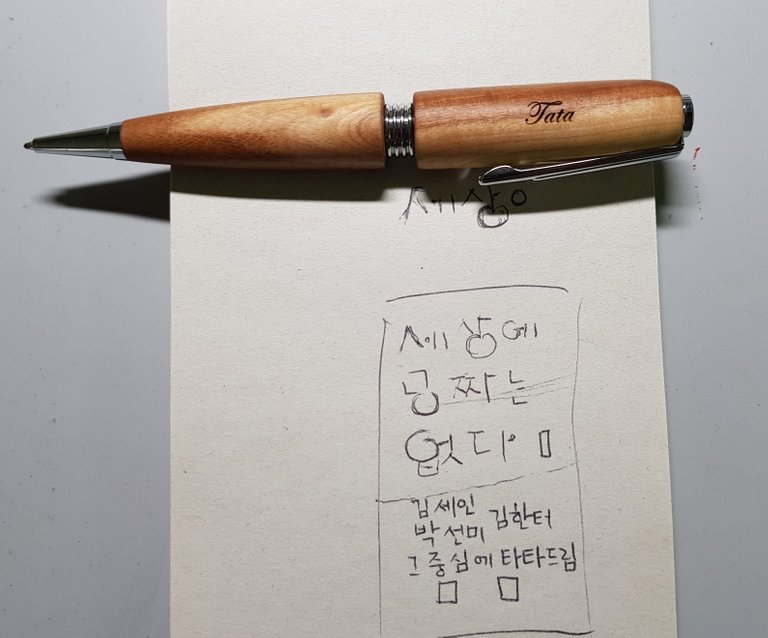 Tata
세상ㅇ
세상에
공짜는
없다.
김세인
박선미 김한터
그 중심에 타타드림